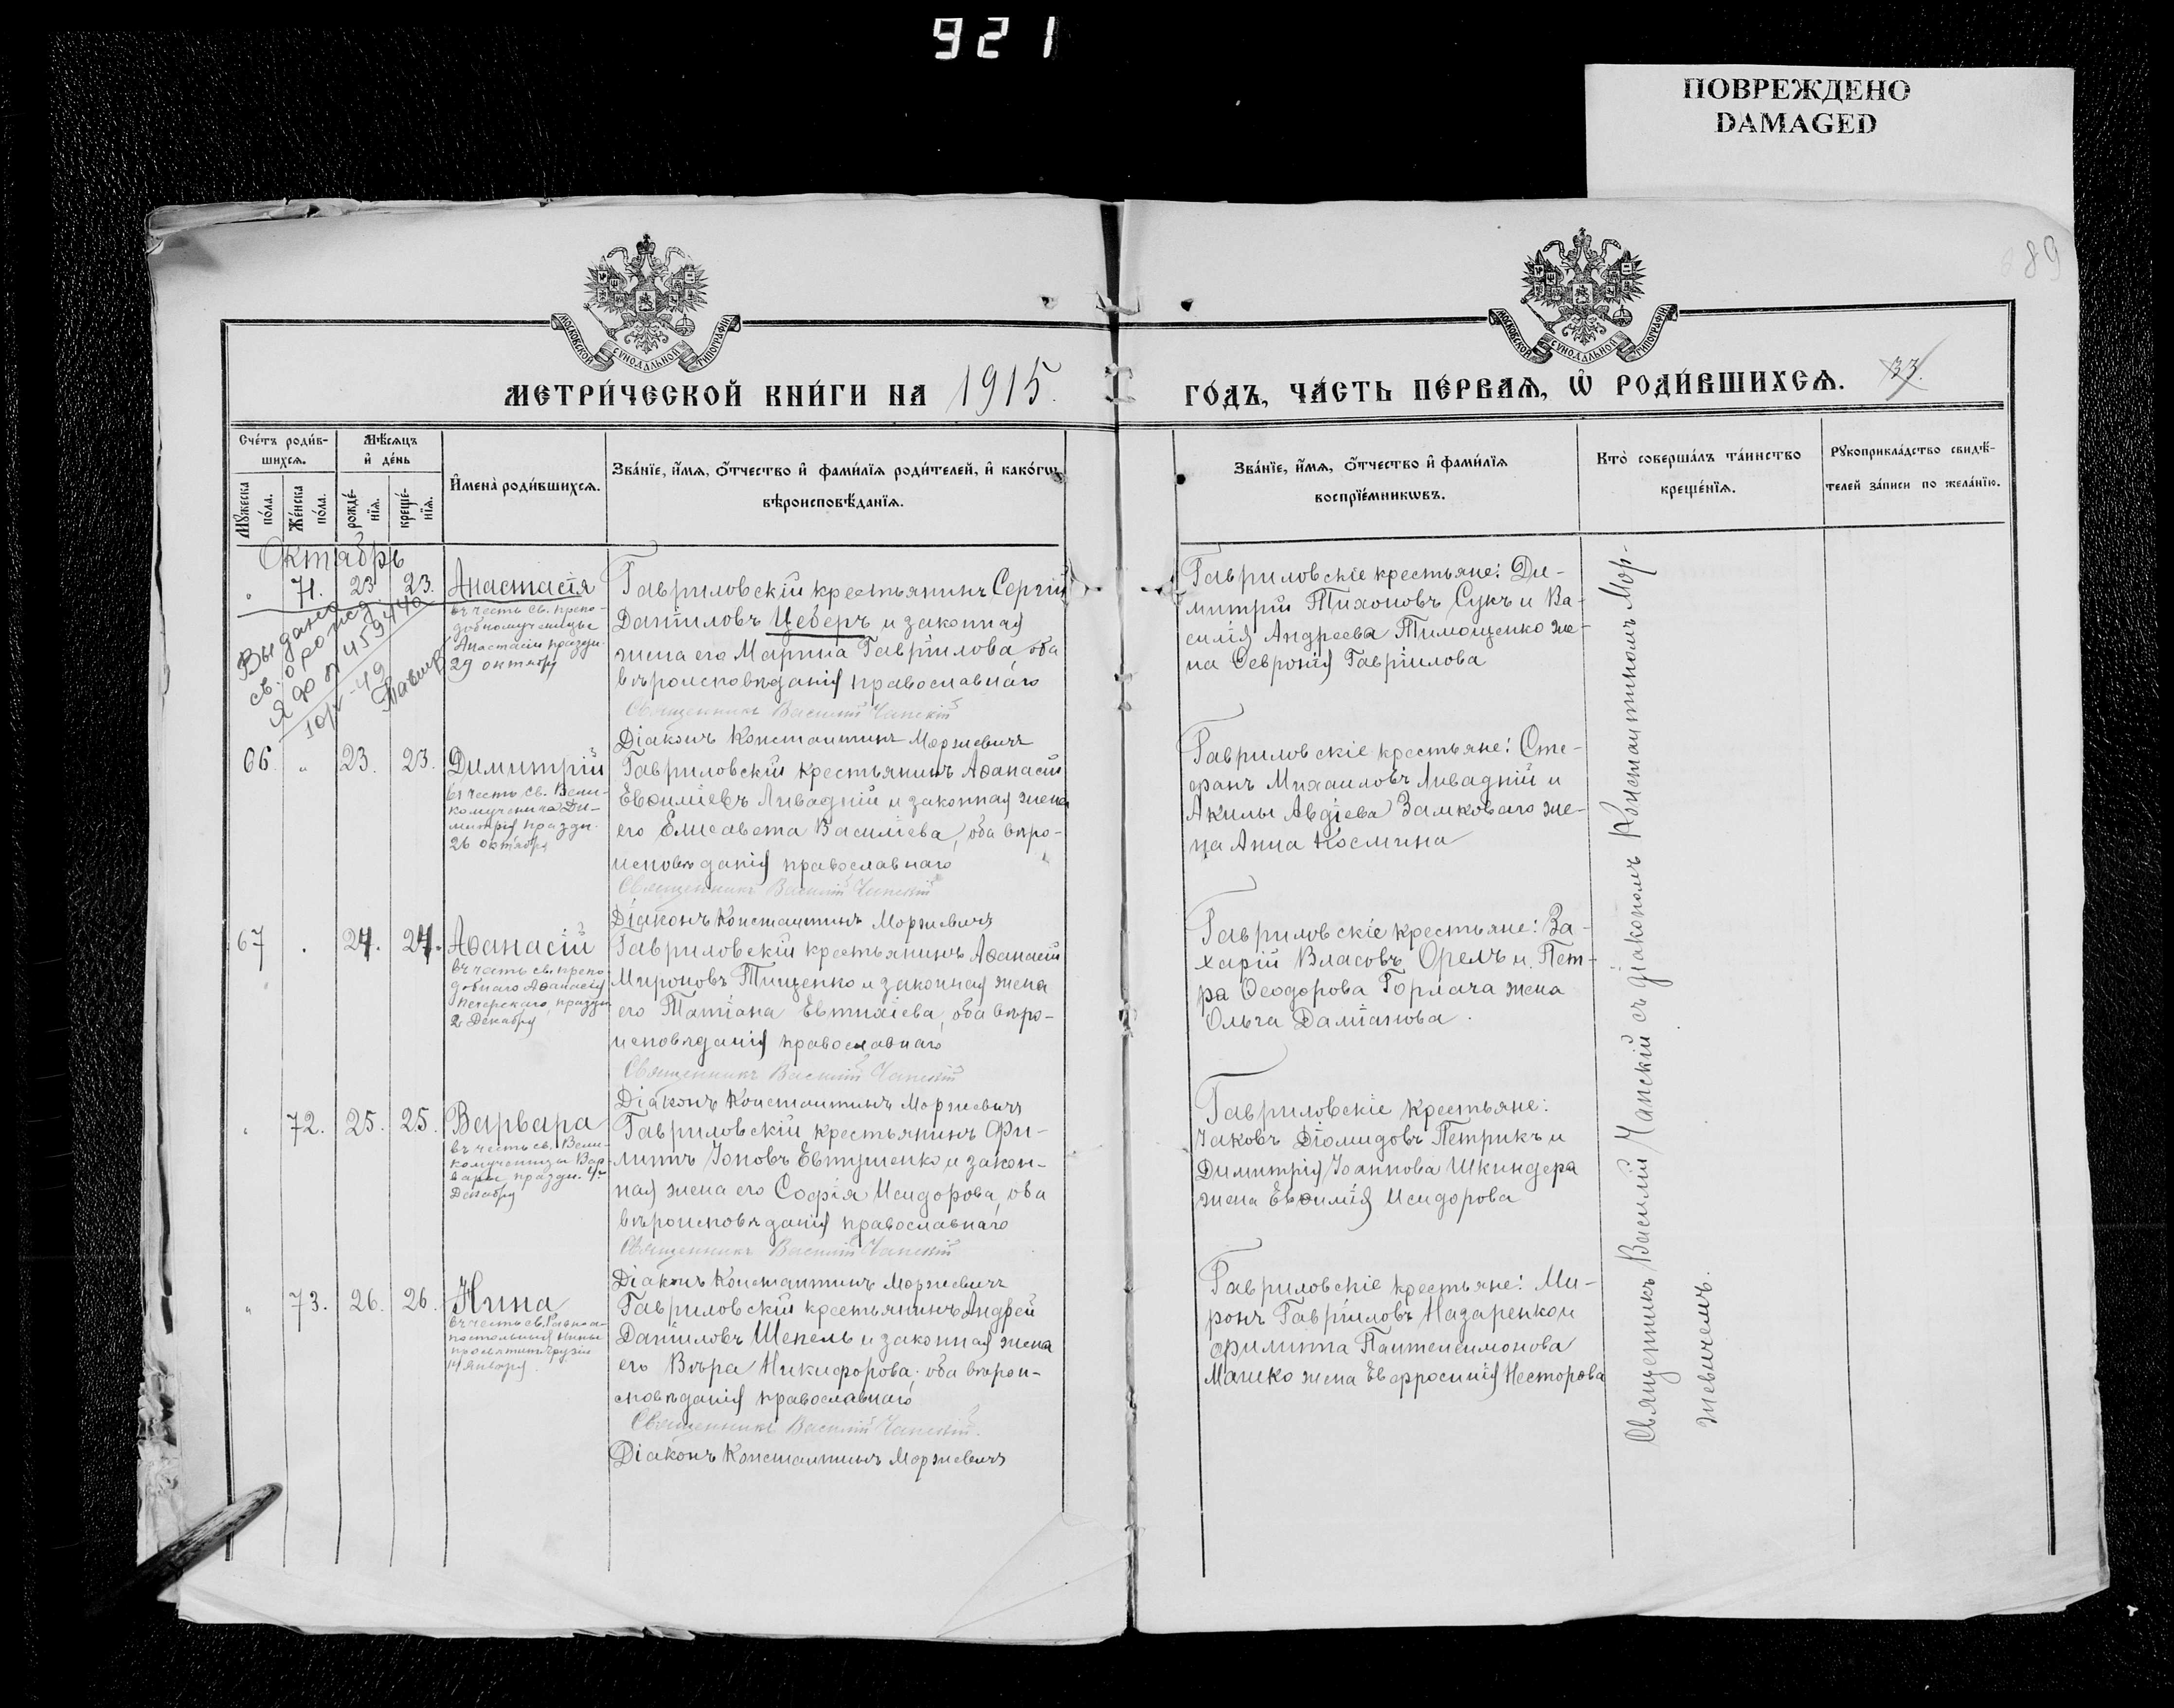 921
ПОВРЕЖДЕНО
DAMAGED
89
МОСКОВСКОЙ СУНОДАЛЬНОЙ ТИПОГРАФІИ
МОСКОВСКОЙ СУНОДАЛЬНОЙ ТИПОГРАФІИ
МЕТРИ́ЧЕСКОЙ КНИ́ГИ НА 1915.
ГО́ДЪ, ЧА́СТЬ ПЕ́РВАѦ, Ѡ҆ РОДИ́ВШИХСѦ. 33.
Сче́тъ роди́в-
шихсѧ.
Мꙋ́жеска по́ла.
Же́нска по́ла.
Мѣ́сѧцъ
и҆ де́нь
рожде́-
нїѧ.
креще́-
нїѧ.
И҆мена̀ роди́вшихсѧ.
Зва́нїе, и҆́мѧ, ѻ҆́тчество и҆ фами́лїѧ роди́телей, и҆ како́гѡ
вѣроисповѣ́данїѧ.
Зва́нїе, и҆́мѧ, ѻ҆́тчество и҆ фами́лїѧ
воспрїе́мникѡвъ.
Кто̀ соверша́лъ та́инство
креще́нїѧ.
Рꙋкоприкла́дство свидѣ́-
телей за́писи по жела́нїю.
Октябрь
" 71. 23 23.
Анастасія
въ честь св. препо-
добномученицы
Анастасіи праздн.
29 октября
Выдано
св. о рожд.
Гавриловскій крестьянинъ Сергій
Даніиловъ Цеберъ и законная
жена его Марина Гавріилова, оба
вѣроисповѣданія православнаго
Священникъ Василій Чапскій
Діаконъ Константинъ Моржевичъ
Гавриловскіе крестьяне: Ди-
митрій Тихоновъ Сукъ и Ва-
силія Андреева Тимощенко же-
на Февронія Гавріилова
66. " 23. 23.
Димитрій
въ честь св. Вели-
комученика Ди-
митрія праздн.
26 октября
Гавриловскій крестьянинъ Аѳанасій
Евѳиміевъ Ливадній и законная жена
его Елисавета Василіева, оба вѣро-
исповѣданія православнаго
Священникъ Василій Чапскій
Діаконъ Константинъ Моржевичъ
Гавриловскіе крестьяне: Сте-
фанъ Михаиловъ Ливадній и
Акилы Авдіева Замковаго же-
на Анна Космина
67 . 24. 24.
Аѳанасій
въ честь св. препо-
добнаго Аѳанасія
Печерскаго, праздн.
2 Декабря
Гавриловскій крестьянинъ Аѳанасій
Мироновъ Тищенко и законная жена
его Татіана Евтихіева, оба вѣро-
исповѣданія православнаго
Священникъ Василій Чапскій
Діаконъ Константинъ Моржевичъ
Гавриловскіе крестьяне: За-
харій Власовъ Орелъ и Пет-
ра Ѳеодорова Гормача жена
Ольга Даміанова.
" 72. 25. 25.
Варвара
въ честь св. Вели-
комученицы Вар-
вары праздн. 4.
Декабря
Гавриловскій крестьянинъ Фи-
липпъ Іоновъ Евтушенко и закон-
ная жена его Софія Исидорова, оба
вѣроисповѣданія православнаго
Священникъ Василій Чапскій
Діаконъ Константинъ Моржевичъ
Гавриловскіе крестьяне:
Іаковъ Діомидовъ Петрикъ и
Димитрія Іоаннова Шкиндера
жена Евѳимія Исидорова
" 73. 26. 26.
Нина
въ честь св. Равноа-
постольныя Нины
просвѣтит. Грузіи
14 Января.
Гавриловскій крестьянинъ Андрей
Даніиловъ Шепель и законная жена
его Вѣра Никифорова, оба вѣрои-
сповѣданія православнаго
Священникъ Василій Чапскій.
Діаконъ Константинъ Моржевичъ
Гавриловскіе крестьяне: Ми-
ронъ Гавріиловъ Назаренко и
Филиппа Пантелеимонова
Машко жена Евфросинія Несторова
Священникъ Василій Чапскій съ діакономъ Константиномъ Мор-
жевичемъ.